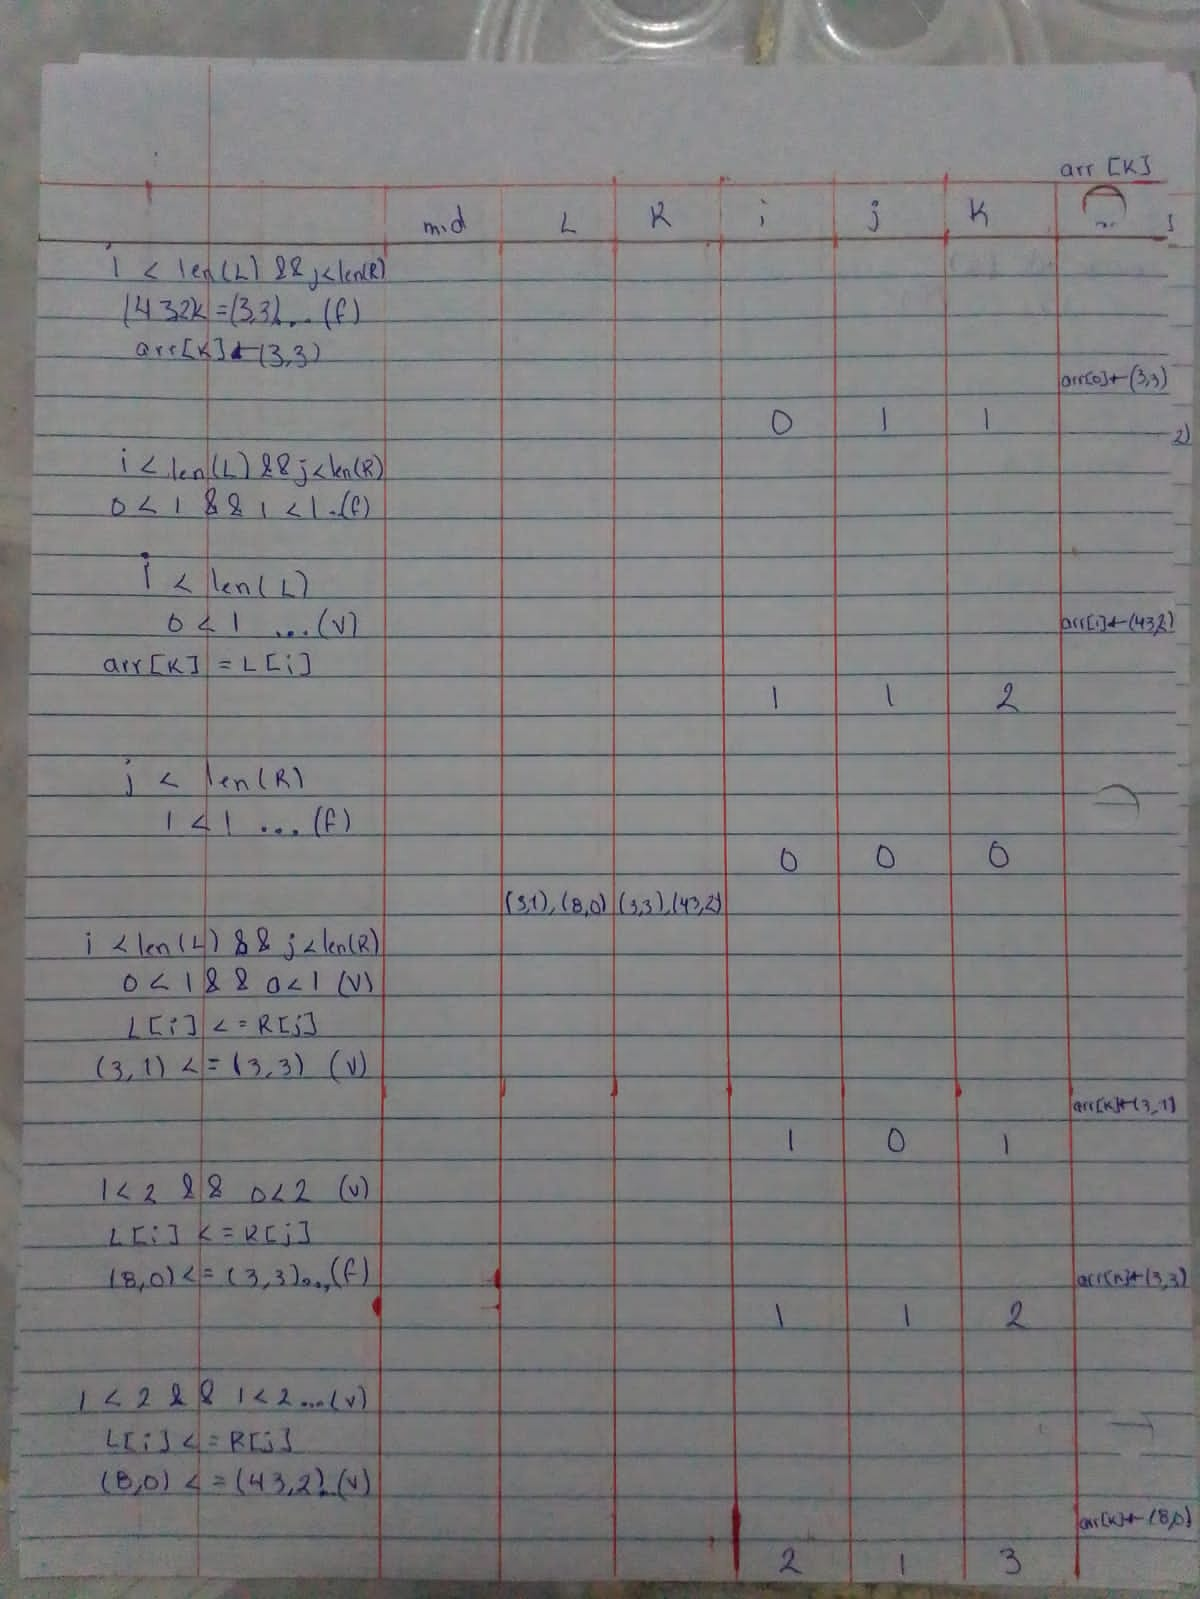 arr [K]
mid L R i j K
i < len(L) && j<len(R)
(43,2)<=(3,3)... (f)
arr[K]←(3,3)
arr[0]←(3,3)
0 1 1
2)
i < len(L) && j<len(R)
0 < 1 && 1 < 1 ..(f)
i < len(L)
0 < 1 ...(V)
arr[1]←(43,2)
arr[K] = L[i]
1 1 2
j < len(R)
1 < 1 ... (f)
0 0 0
(3,1),(8,0) (3,3),(43,2)
i < len(L) && j < len(R)
0 < 1 && 0 < 1 (V)
L[i] <= R[j]
(3,1) <= (3,3) (V)
arr[K]←(3,1)
1 0 1
1 < 2 && 0 < 2 (V)
L[i] <= R[j]
(8,0) <= (3,3)...(f)
arr[K]←(3,3)
1 1 2
1 < 2 && 1 < 2 ...(V)
L[i] <= R[j]
(8,0) <= (43,2)..(V)
arr[K]←(8,0)
2 1 3